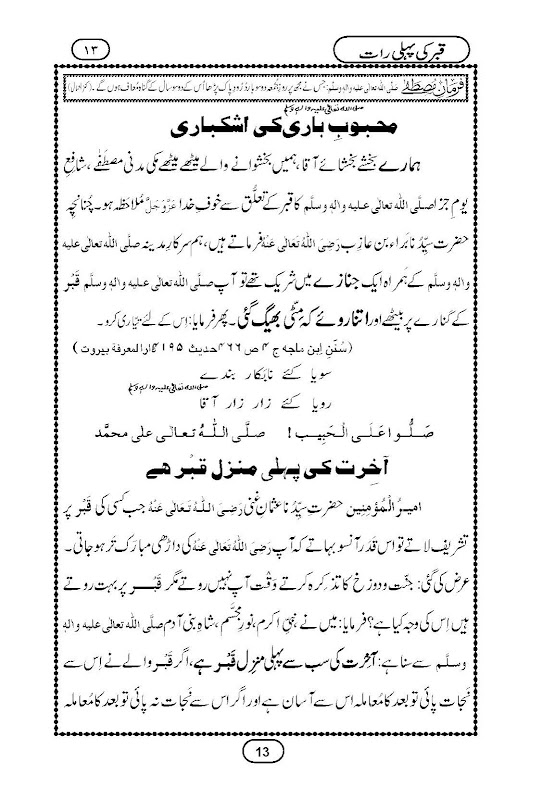 قبر کی پہلی رات
۱۳
فرمانِ مصطفٰے صلی اللہ تعالی علیہ والہ وسلم: جس نے مجھ پر روزِ جمعہ دو سو بار دُرُود پاک پڑھا اُس کے دو سو سال کے گناہ معاف ہوں گے۔ (کنز العمال)
صلی اللہ تعالی علیہ والہ وسلم
محبوبِ باری کی اشکباری
ہمارے بخشے بخشائے آقا، ہمیں بخشوانے والے میٹھے میٹھے مکّی مدنی مصطَفٰے، شافِعِ
یومِ جزا صلَّی اللہ تعالیٰ علیہ والہٖ وسلَّم کا قبر کے تعلُّق سے خوفِ خدا عَزَّوَجَلَّ مُلاحَظہ ہو۔ چُنانچِہ
حضرت سیِّدُنا بَراء بن عازِب رَضِیَ اللہُ تَعَالٰی عَنْہُ فرماتے ہیں، ہم سرکارِ مدینہ صلَّی اللہ تعالیٰ علیہ
والہٖ وسلَّم کے ہمراہ ایک جنازے میں شریک تھے تو آپ صلَّی اللہ تعالیٰ علیہ والہٖ وسلَّم قَبْر
کے کَنارے پر بیٹھے اور اتنا روئے کہ مِٹّی بھیگ گئی۔ پھر فرمایا: اِس کے لئے تیّاری کرو۔
(سُنَنِ اِبن ماجہ ج ۴ ص ۴۶۶ حدیث ۴۱۹۵ دارالمعرفۃ بیروت)
سویا کئے نابکار بندے
صلی اللہ تعالی علیہ والہ وسلم
رویا کئے زار زار آقا
صَلُّوا عَلَی الْحَبِیب! صلَّی اللہُ تعالیٰ علیٰ محمَّد
آخِرت کی پہلی منزل قبْر ھے
امیرُ الْمُؤمِنین حضرتِ سیِّدُنا عثمانِ غنی رَضِیَ اللہُ تَعَالٰی عَنْہُ جب کسی کی قَبْر پر
تشریف لاتے تو اس قَدَر آنسو بہاتے کہ آپ رَضِیَ اللہُ تَعَالٰی عَنْہُ کی داڑھی مبارَک تر ہو جاتی۔
عرض کی گئی: جنّت و دوزخ کا تذکِرہ کرتے وَقْت آپ نہیں روتے مگر قَبْر پر بہت روتے
ہیں اِس کی وجہ کیا ہے؟ فرمایا: میں نے نبیِّ اکرم، نورِ مجسَّم، شاہِ بنی آدم صلَّی اللہ تعالیٰ علیہ والہٖ
وسلَّم سے سنا ہے: آخِرت کی سب سے پہلی منزِل قَبْر ہے، اگر قَبْر والے نے اِس سے
نَجات پائی تو بعد کا مُعامَلہ اس سے آسان ہے اور اگر اس سے نَجات نہ پائی تو بعد کا مُعامَلہ
13